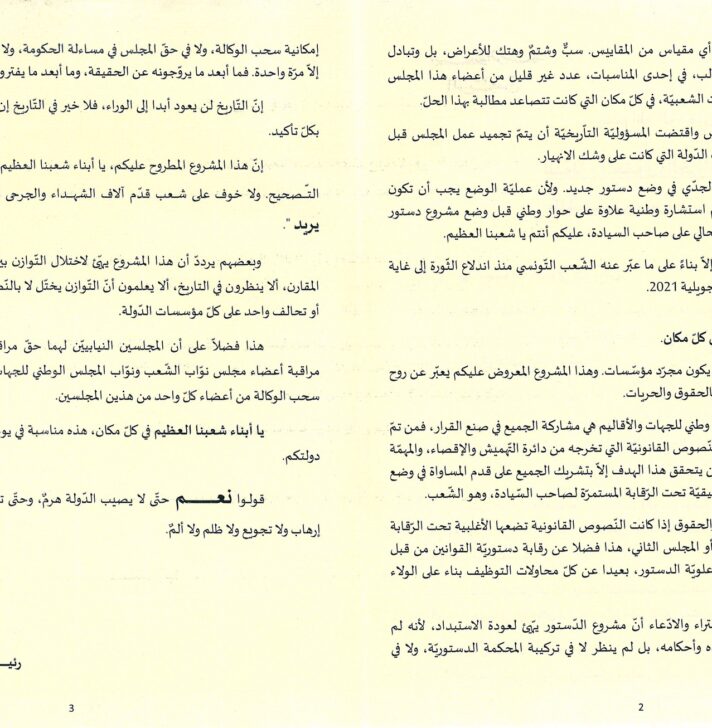 أي مقياس من المقاييس. سبٌّ وشتمٌ وهتك للأعراض، بل وتبادل
في إحدى المناسبات، عدد غير قليل من أعضاء هذا المجلس
الشعبيّة، في كلّ مكان التي كانت تتصاعد مطالبة بهذا الحلّ.
واقتضت المسؤوليّة التاّريخيّة أن يتمّ تجميد عمل المجلس قبل
الدّولة التي كانت على وشك الانهيار.
في وضع دستور جديد. ولأن عمليّة الوضع يجب أن تكون
استشارة وطنية علاوة على حوار وطني قبل وضع مشروع دستور
على صاحب السيادة، عليكم أنتم يا شعبنا العظيم.
إلاّ بناءً على ما عبّر عنه الشّعب التّونسي منذ اندلاع الثّورة إلى غاية
جويلية 2021.
كلّ مكان.
يكون مجرّد مؤسّسات. وهذا المشروع المعروض عليكم يعبّر عن روح
بالحقوق والحريات.
وطني للجهات والأقاليم هي مشاركة الجميع في صنع القرار، فمن تمّ
القانونيّة التي تخرجه من دائرة التّهميش والإقصاء، والمهمّة
يتحقق هذا الهدف إلاّ بتشريك الجميع على قدم المساواة في وضع
تحت الرّقابة المستمرّة لصاحب السّيادة، وهو الشّعب.
والحقوق إذا كانت النّصوص القانونية تضعها الأغلبية تحت الرّقابة
أو المجلس الثاني، هذا فضلا عن رقابة دستوريّة القوانين من قبل
علويّة الدستور، بعيدا عن كلّ محاولات التوظيف بناء على الولاء
والادّعاء أنّ مشروع الدّستور يهيّئ لعودة الاستبداد، لأنه لم
وأحكامه، بل لم ينظر لا في تركيبة المحكمة الدستوريّة، ولا في
2
إمكانية سحب الوكالة، ولا في حقّ المجلس في مساءلة الحكومة، ولا
إلاّ مرّة واحدة. فما أبعد ما يروّجونه عن الحقيقة، وما أبعد ما
إنّ التّاريخ لن يعود أبدا إلى الوراء، فلا خير في التّاريخ إن
بكلّ تأكيد.
إنّ هذا المشروع المطروح عليكم، يا أبناء شعبنا العظيم
التّصحيح. ولا خوف على شعب قدّم آلاف الشهداء والجرحى
يريد ".
وبعضهم يردّد أن هذا المشروع يهيّئ لاختلال التّوازن
المقارن، ألا ينظرون في التاريخ، ألا يعلمون أنّ التّوازن يختلّ لا
أو تحالف واحد على كلّ مؤسسات الدّولة.
هذا فضلاّ على أن المجلسين النيابيّين لهما حقّ
مراقبة أعضاء مجلس نوّاب الشّعب ونوّاب المجلس الوطني للجهات
سحب الوكالة من أعضاء كلّ واحد من هذين المجلسين.
يا أبناء شعبنا العظيم في كلّ مكان، هذه مناسبة في
دولتكم.
قولوا نعـــم حتّى لا يصيب الدّولة هرمٌ، وحتّى
إرهاب ولا تجويع ولا ظلم ولا ألمٌ.
3